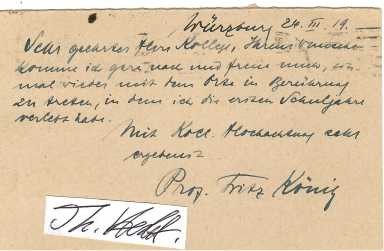 Würzburg 24. III. 19.
Sehr geehrter Herr Kollege, Ihrem Wunsche
komme ich gern nach und freue mich, ein-
mal wieder mit dem Orte in Berührung
zu treten, in dem ich die ersten Schuljahre
verlebt habe.
Mit Koll. Hochachtung sehr
ergebenst
Prof. Fritz König
Th.